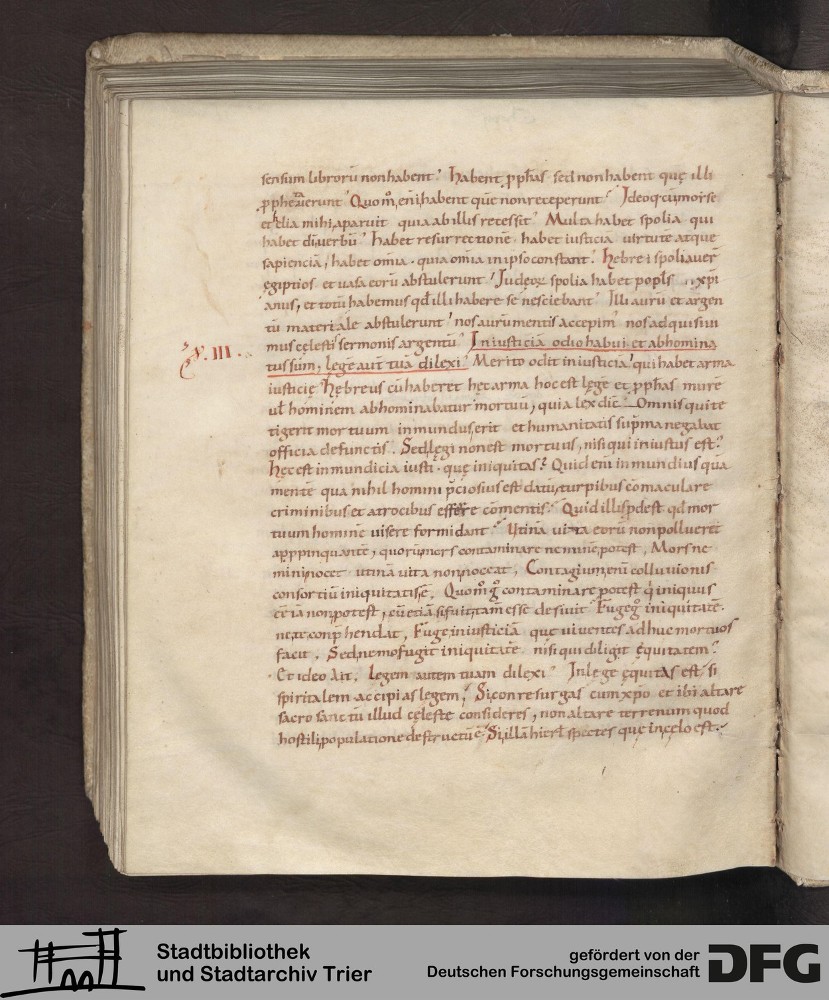 sensum librorū non habent? habent p̱phas sed non habent quę illi
p̱phetauerunt? Quom̄ enī habent quē non receperunt? Ideoq; cū morse
et elia mihi aparuit quia ab illis recessit? Multa habet spolia qui
habet dī uerbū? habet resurrectionē habet iusticiā uirtutē atque
sapienciā, habet om̄ia quia om̄ia in ipso constant? hebrei spoliauer̄
egiptios et uasa eorū abstulerunt? Judeoꝝ spolia habet popl̄s xp̄i
anus, et totū habemus qd̄ illi habere se nesciebant? Illi aurū et argen
tū materiale abstulerunt? nos aurū mentis accepim̄? nos adquisiui
mus cęlesti sermonis argentū? Iniusticiā odio habui et abhomina
x. III.
tus sum, legē aut̄ tuā dilexi? Merito odit iniusticiā? qui habet arma
iusticię hębreus cū haberet hęc arma hoc est lęgē et p̱phas murē
ul̄ hominem abhominabatur mortuū, quia lex dic̄. Omnis qui te
tigerit mortuum inmundus erit et humanitatis sup̄ma negabat
officia defunctis. Sed lęgi non est mortuus, nisi qui iniustus est?
hęc est inmundicia iusti quę iniquitas? Quid enī inmundius quā
mentē qua nihil homini p̄ciosius est datū, turpibus cōmaculare
criminibus et atrocibus cōmentis? Quid illis p̱dest qd̄ mor
tuum hominē uisere formidant? Utinā uita eorū non pollueret
app̱pinquantē, quorū mors contaminare neminē potest, Mors ne
mini nocet utinā uita non noceat, Contagium enī colluuionis
consortiū iniquitatis ē. Quom̄ g̊ contaminare potest q̄ iniquus
ēē iā non potest, cū etiā si fuit, tam esse desiuit? Fuge g̊ iniquitatē
ne te conp̄hendat, Fuge iniusticiā quę uiuentes adhuc mortuos
facit. Sed nemo fugit iniquitatē nisi qui diligit ęquitatem?
Et ideo Ait. Legem autem tuam dilexi? In lege ęquitas est, si
spiritalem accipias legem? Si consresurgas cum xp̄o et ibi altare
sacro sanctū illud cęleste consideres, non altare terrenum quod
hostili populatione destructū ē? Si illā hierl̄ spectes quę in cęlo est?
Stadtbibliothek
und Stadtarchiv Trier
gefördert von der
Deutschen Forschungsgemeinschaft DFG